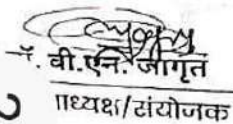 वी.एन. जागृत
ाध्यक्ष/संयोजक